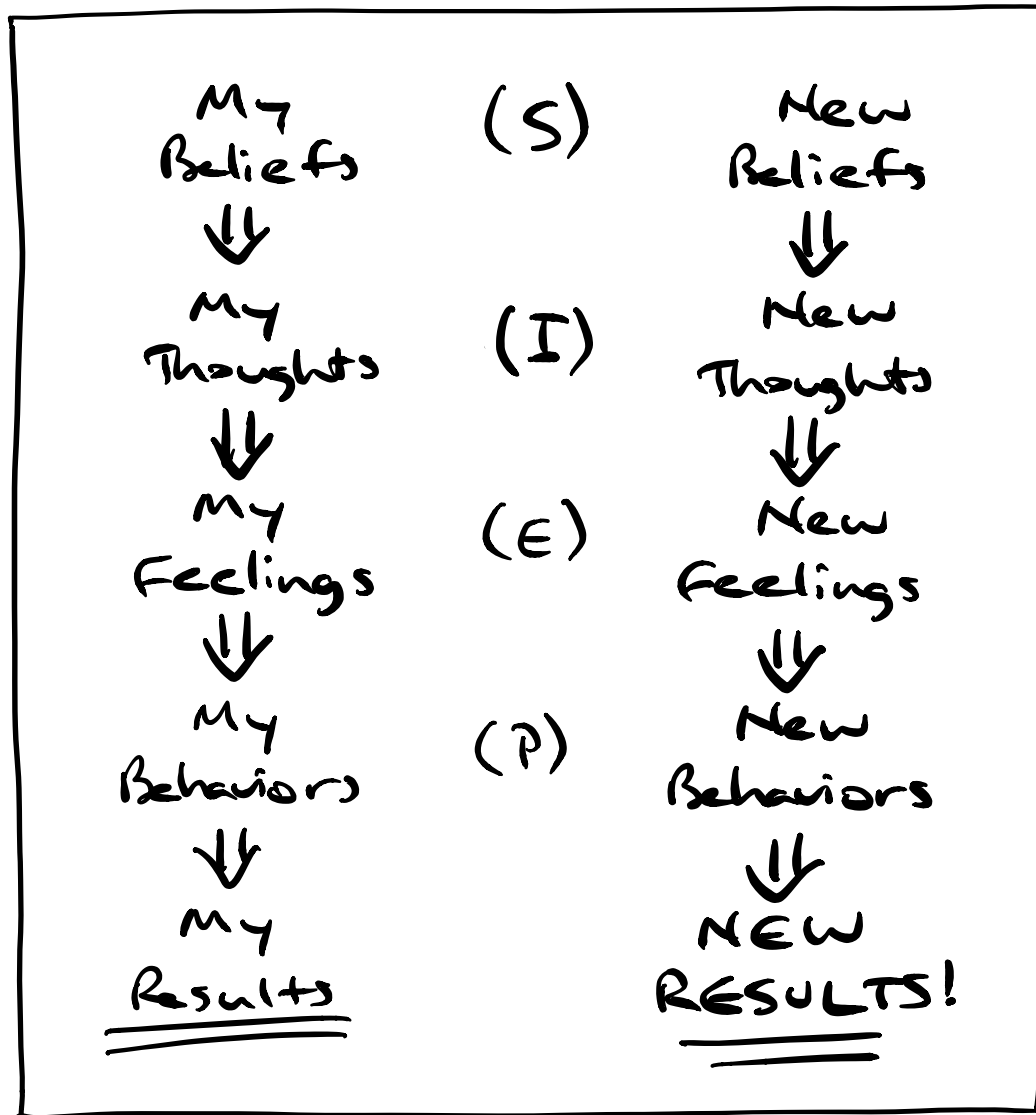 My
Beliefs
My
Thoughts
My
Feelings
My
Behaviors
My
Results
(S)
(I)
(E)
(P)
New
Beliefs
New
Thoughts
New
Feelings
New
Behaviors
NEW
RESULTS!